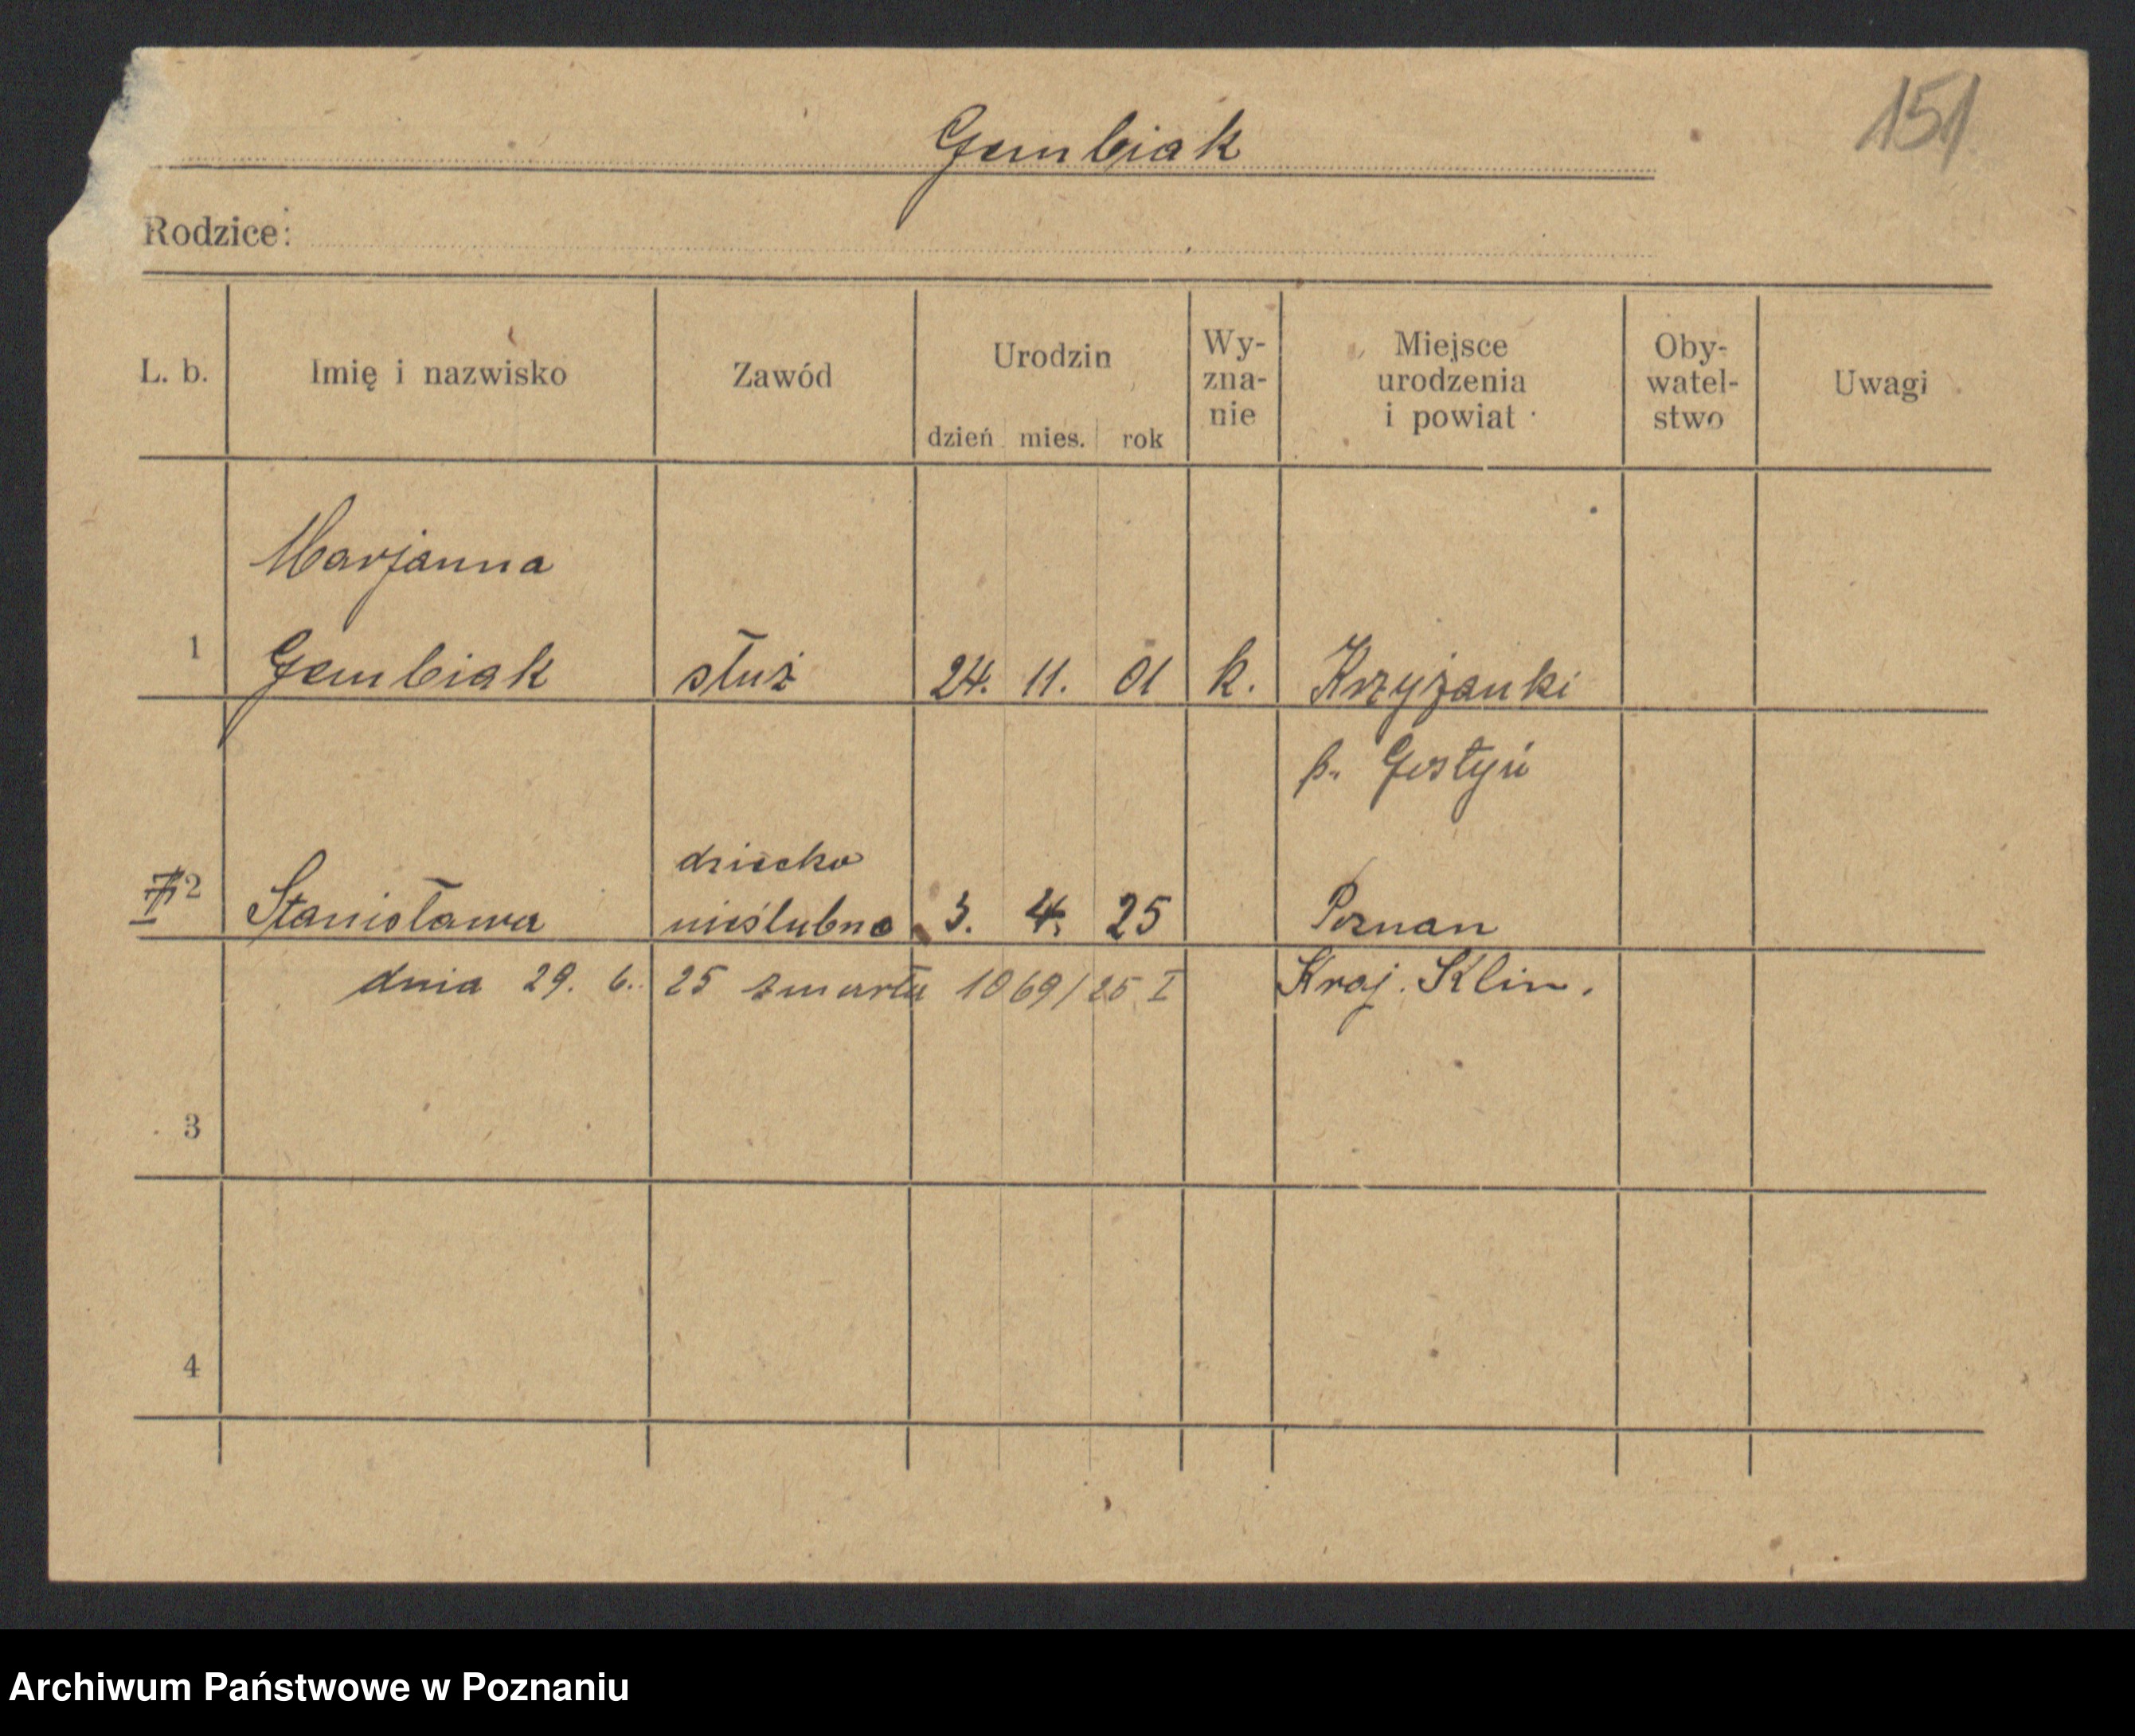 151
Gembiak
Rodzice:
L. b.
Imię i nazwisko
Zawód
Urodzin
dzień mies. rok
Wy-
zna-
nie
Miejsce
urodzenia
i powiat
Oby-
watel-
stwo
Uwagi
Marjanna
1 Gembiak służ 24. 11. 01 k. Krzyżanki
p. Gostyń
dziecko
2 Stanisława nieślubne 3. 4. 25 Poznan
dnia 29. 6. 25 zmarła 1069/25 I Kraj. Klin.
3
4
Archiwum Państwowe w Poznaniu